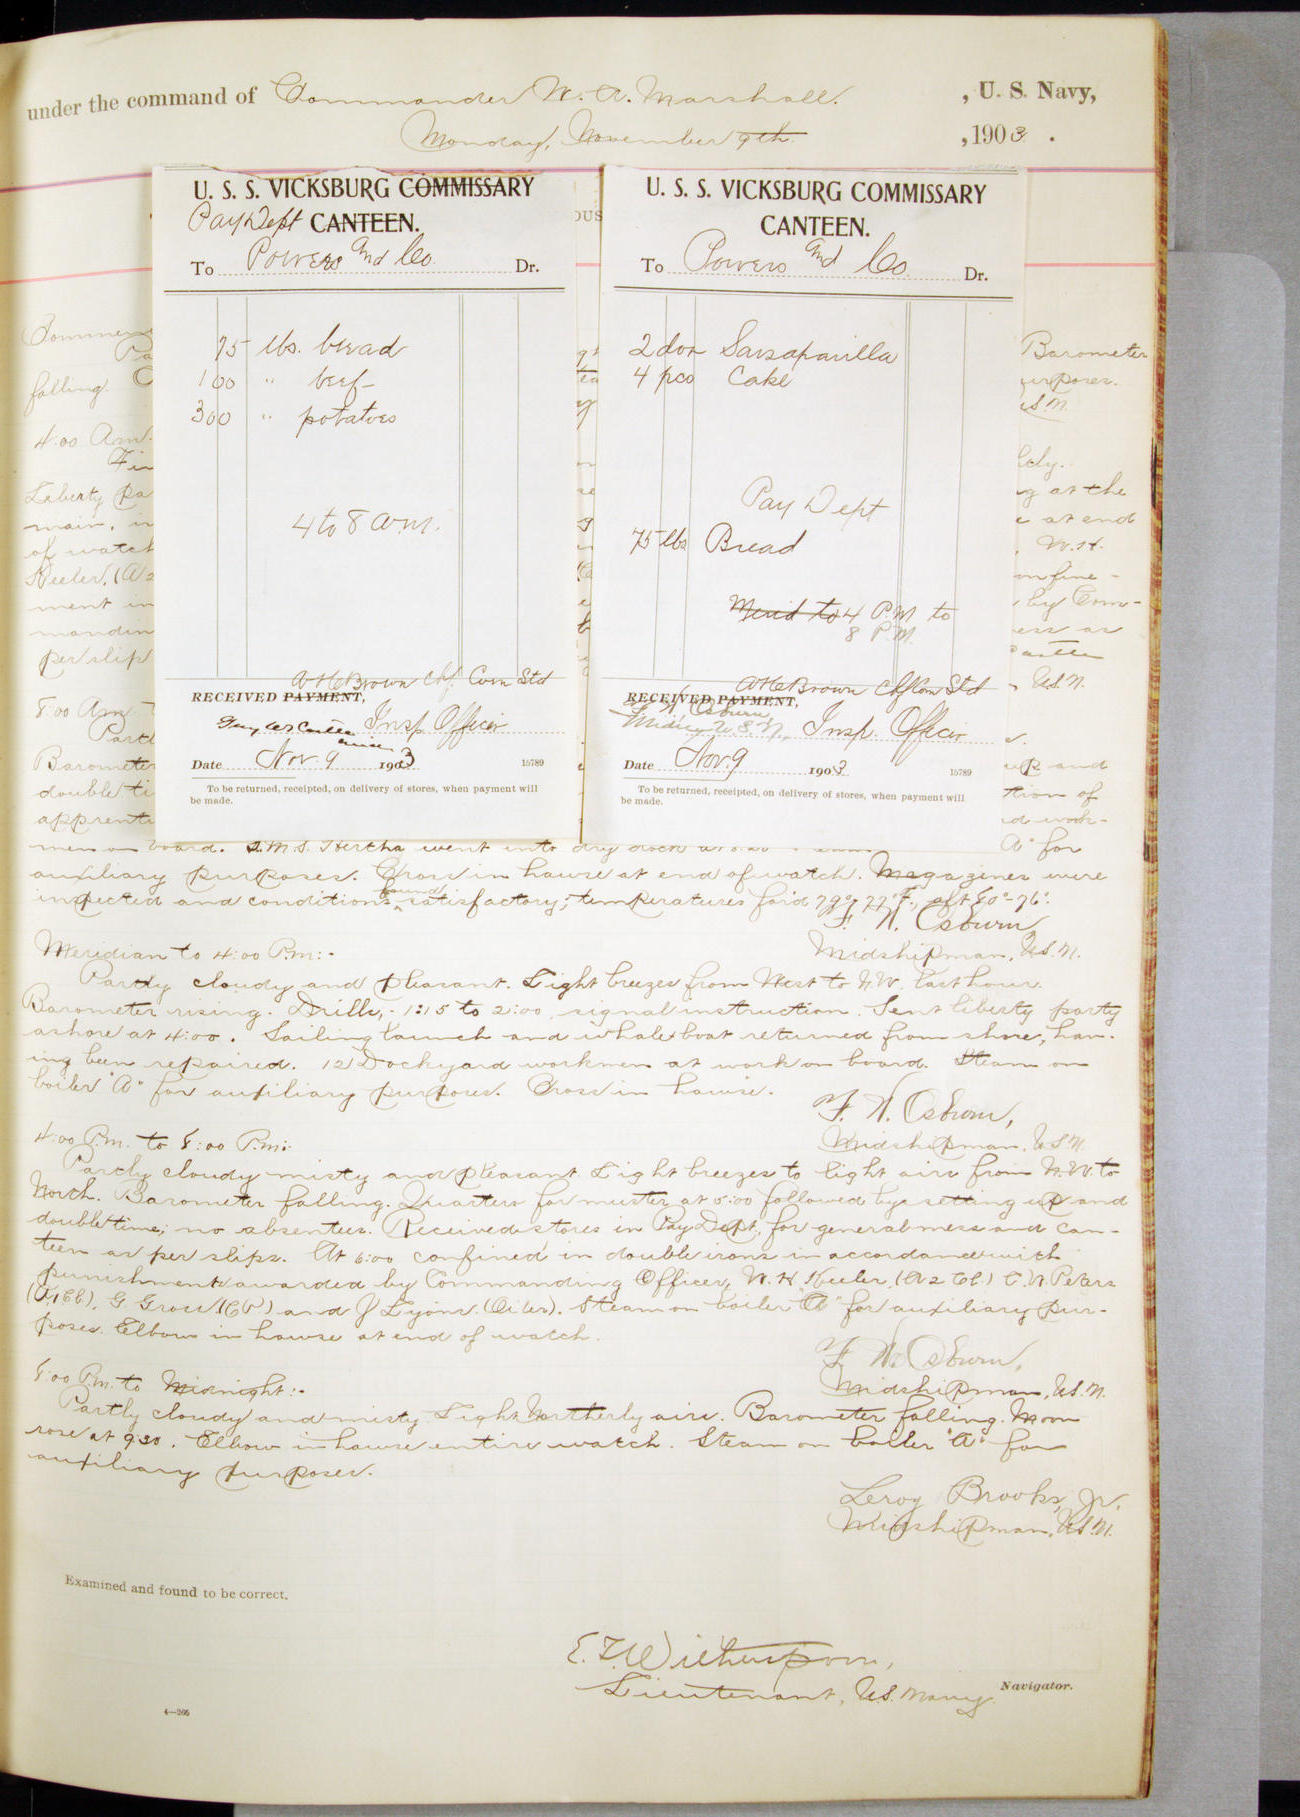 under the command of Commander W. A. Marshall. , U. S. Navy,
Monday, November 9th. , 1903 .
U. S. S. VICKSBURG COMMISSARY
Pay Dept CANTEEN.
To Powers and Co. Dr.
75 lbs. bread
100 " beef
300 " potatoes
4 to 8 a.m.
A H Brown Chf. Com Std
RECEIVED PAYMENT,
Insp. Officer
Date Nov. 9 1903 15789
To be returned, receipted, on delivery of stores, when payment will
be made.
U. S. S. VICKSBURG COMMISSARY
CANTEEN.
To Powers and Co Dr.
2 doz Sarsaparilla
4 pcs Cake
Pay Dept
75 lbs Bread
Merid to 4 P.M. to
8 P.M.
A H Brown Chf Com Std
RECEIVED PAYMENT,
F. N. Osburn
Midn U.S.N. Insp. Officer
Date Nov. 9 1903 15789
To be returned, receipted, on delivery of stores, when payment will
be made.
Barometer
falling.
urposes.
4:00 Am.
Liberty pa
g at the
main, in
at end
of watch
W. H.
Keeler, (A 2
onfine-
ment in
by Com-
mandin
per slip
U.S.N.
8:00 Am.
Partl
Barometer
up and
double ti
tion of
apprenti
d work-
men on board. S.M.S. Hertha went into dry dock at "A" for
auxiliary purposes. Cross in hawse at end of watch. Magazines were
inspected and conditions found satisfactory; temperatures for'd 79°-77° F., aft 80°-76°.
F. N. Osburn
Midshipman, U.S.N.
Meridian to 4:00 P.m:-
Partly cloudy and pleasant. Light breezes from West to N.W. last hour.
Barometer rising. Drills,- 1:15 to 2:00, signal instruction. Sent liberty party
ashore at 4:00. Sailing launch and whaleboat returned from shore, hav-
ing been repaired. 12 Dockyard workmen at work on board. Steam on
boiler "A" for auxiliary purposes. Cross in hawse.
F. N. Osburn,
Midshipman, U.S.N.
4:00 P.m. to 8:00 P.m:-
Partly cloudy misty and pleasant. Light breezes to light airs from N.W. to
North. Barometer falling. Quarters for muster at 5:00 followed by setting up and
double time; no absentees. Received stores in Pay Dept. for general mess and can-
teen as per slips. At 6:00 confined in double irons in accordance with
punishments awarded by Commanding Officer, W. H. Keeler, (A 2 Cl.) C. N. Peters
(A 1 Cl), G. Gross (C P) and J Lyons. (Oiler). Steam on boiler "A" for auxiliary pur-
poses. Elbow in hawse at end of watch.
F. N. Osburn,
Midshipman, U.S.N.
8:00 P.m. to Midnight:-
Partly cloudy and misty. Light Northerly airs. Barometer falling. Moon
rose at 9:30. Elbow in hawse entire watch. Steam on boiler "A" for
auxiliary purposes.
Leroy Brooks, Jr.
Midshipman, U.S.N.
Examined and found to be correct.
E. F. Witherspoon,
Lieutenant, U.S. Navy Navigator.
4—266